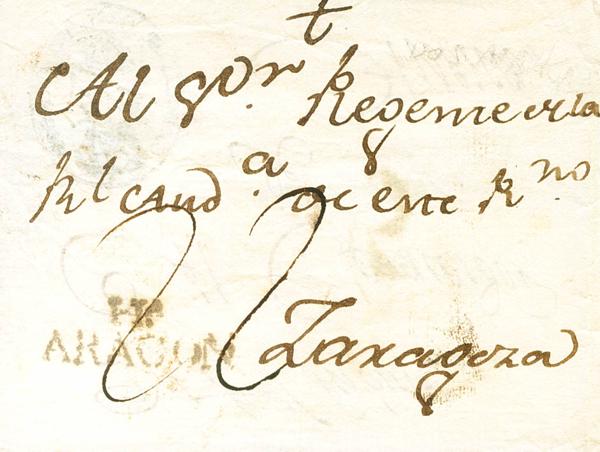 Al Sor Regente de la
Rl Aud.a de este R.no
Zaragoza
ARAGON